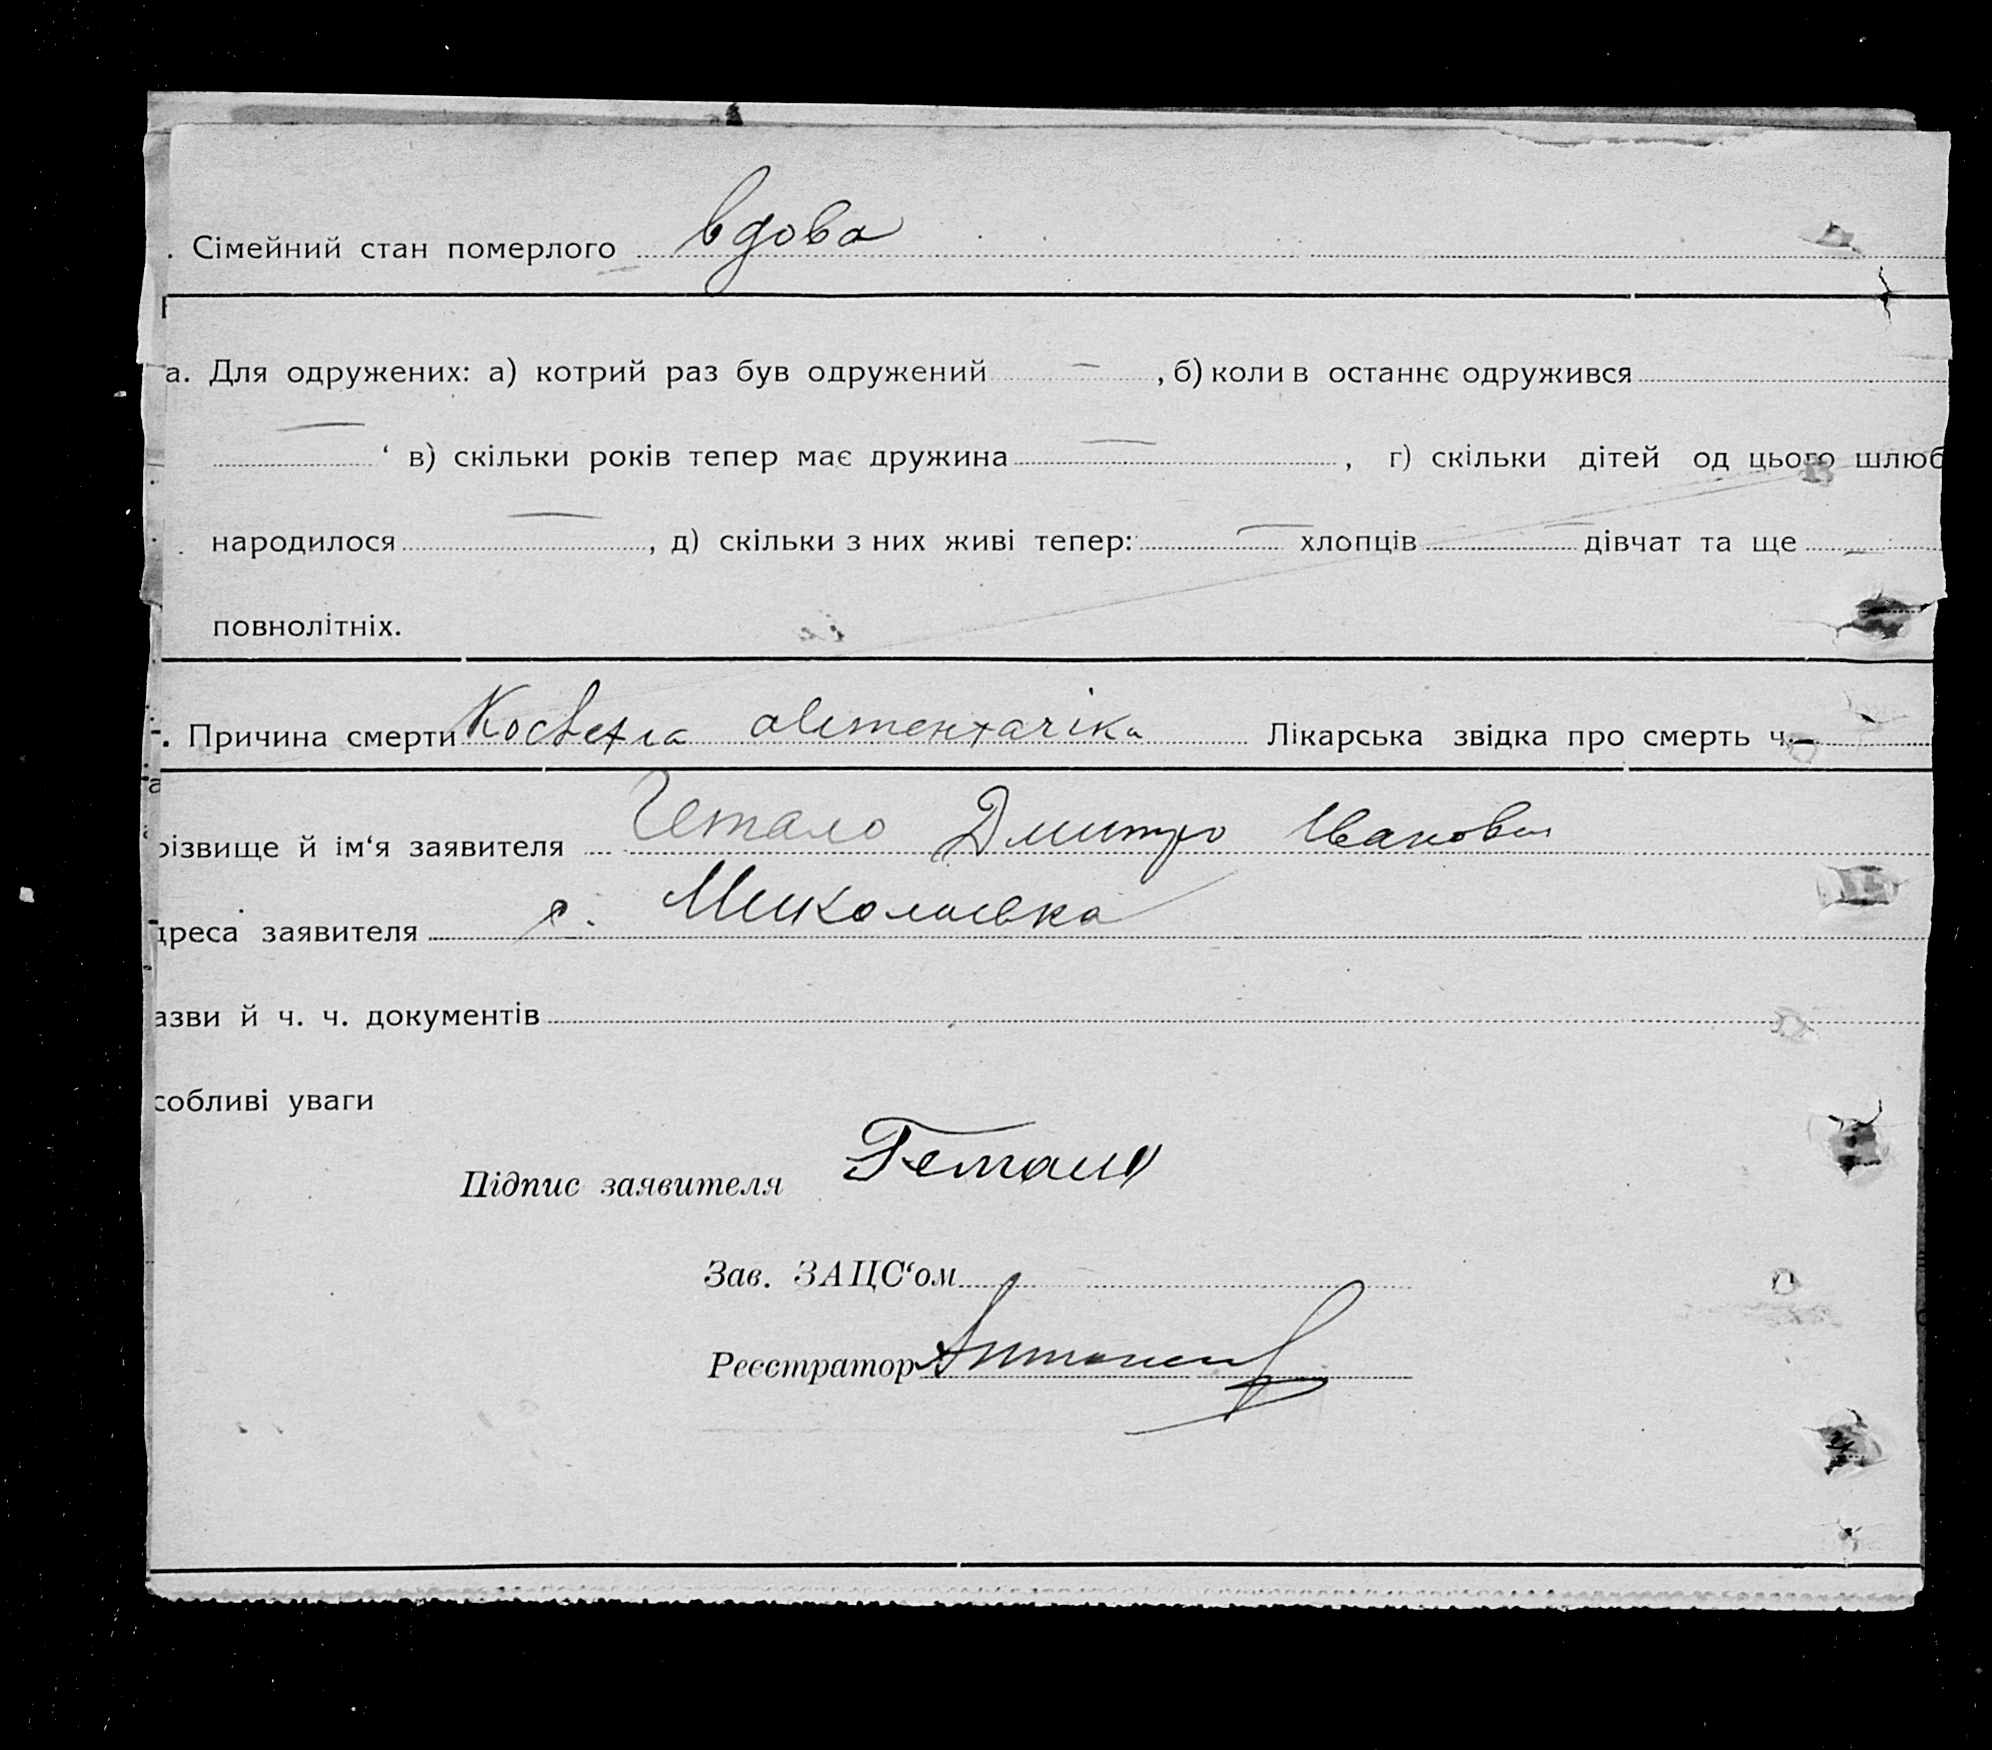 . Сімейний стан померлого вдова
а. Для одружених: а) котрий раз був одружений — , б) коли в останнє одружився
— ‘ в) скільки років тепер має дружина — , г) скільки дітей од цього шлюб
народилося — , д) скільки з них живі тепер: — хлопців — дівчат та ще —
повнолітніх.
. Причина смерти алементачіка Лікарська звідка про смерть ч. —
різвище й ім‘я заявителя Гетало Дмитро Іванович
дреса заявителя с. Миколаевка
азви й ч. ч. документів
собливі уваги
Підпис заявителя Гетало
Зав. ЗАЦС‘ом
Реєстратор